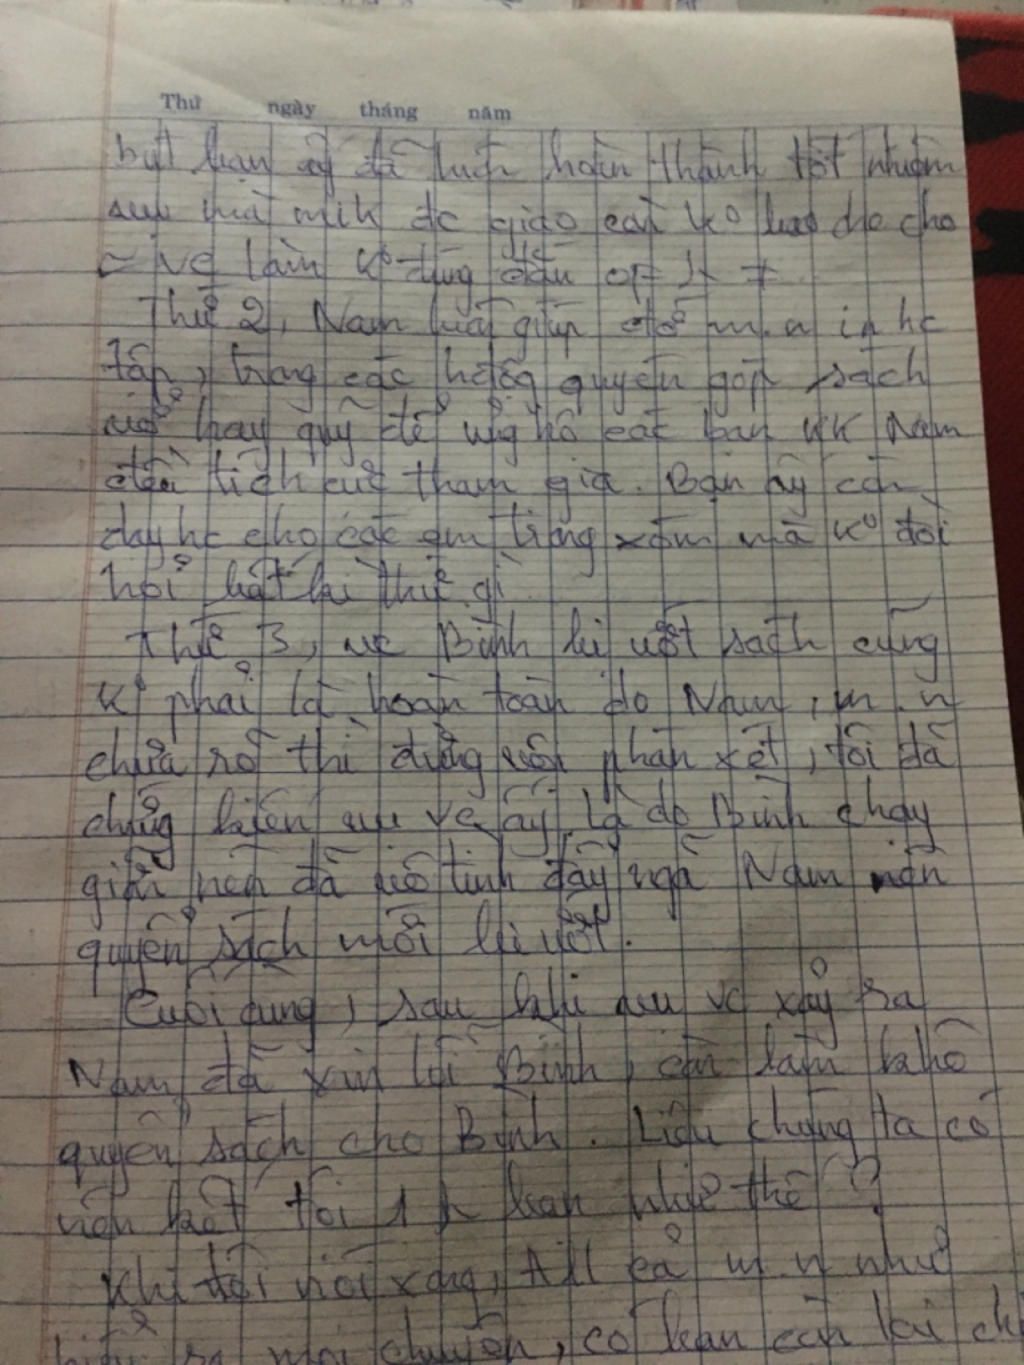 Thứ ngày tháng năm
bạn ấy đã luôn hoàn thành tốt nhiệm
mà mik đc giao còn kº bao che cho
~ vc làm kº đúng đắn of h ≠
Thứ 2, Nam luôn giúp đỡ m.n in hc
tập, trong các hđộng quyên góp sách
vở hay quỹ để ủng hộ các bạn KK Nam
đều tích cực tham gia. Bạn ấy còn
dạy hc cho các em trong xóm mà kº đòi
hỏi bất kì thứ gì
Thứ 3, vc Bình bị ướt sách cũng
kº phải là hoàn toàn do Nam, m.n
chưa rõ thì đừng vội phán xét, tôi đã
chứng kiến sự vc ấy. Là do Bình chạy
giỡn nên đã vô tình đẩy ngã Nam nên
quyển sách mới bị ướt.
Cuối cùng, sau khi sự vc xảy ra
Nam đã xin lỗi Bình, còn làm khô
quyển sách cho Bình. Liệu chúng ta có
nên kết tội 1 h bạn như thế ?
Khi tôi nói xong, All cả m.n như
ra mọi chuyện, có bạn còn lại